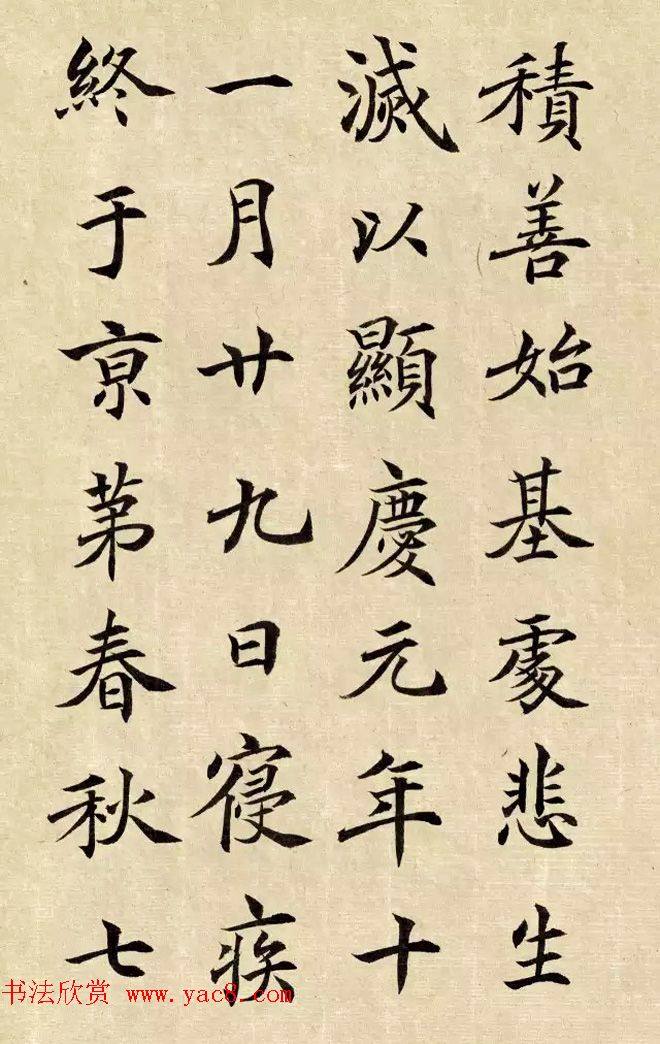 積善始基處悲生
滅以顯慶元年十
一月廿九日寑疾
終于京第春秋七
书法欣赏 www.yac8.com